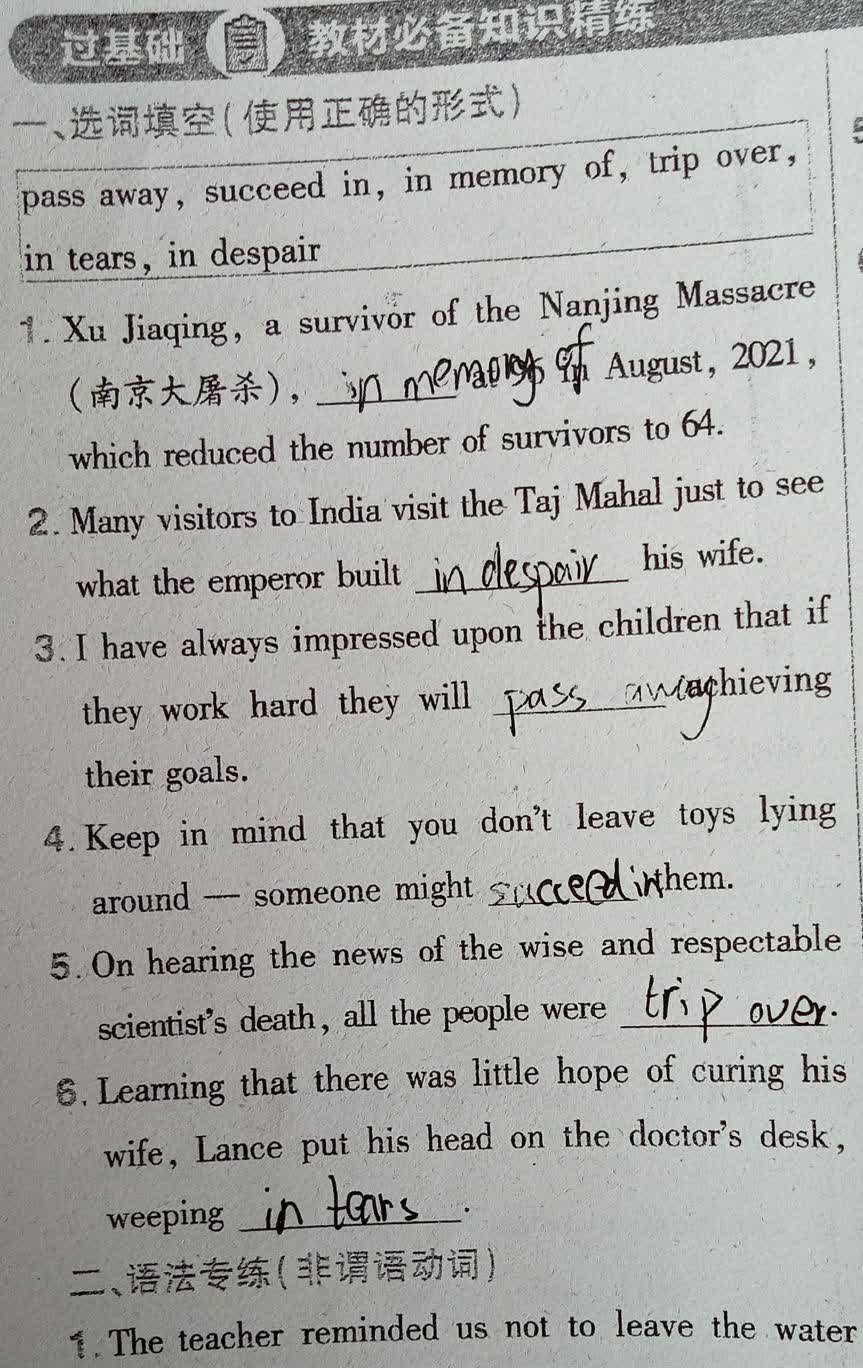 过基础 教材必备知识精练
一、选词填空(使用正确的形式)
pass away, succeed in, in memory of, trip over,
in tears, in despair
1. Xu Jiaqing, a survivor of the Nanjing Massacre
(南京大屠杀), in memory of in August, 2021,
which reduced the number of survivors to 64.
2. Many visitors to India visit the Taj Mahal just to see
what the emperor built in despair his wife.
3. I have always impressed upon the children that if
they work hard they will pass away achieving
their goals.
4. Keep in mind that you don't leave toys lying
around — someone might succeed in them.
5. On hearing the news of the wise and respectable
scientist's death, all the people were trip over.
6. Learning that there was little hope of curing his
wife, Lance put his head on the doctor's desk,
weeping in tears.
二、语法专练(非谓语动词)
1. The teacher reminded us not to leave the water